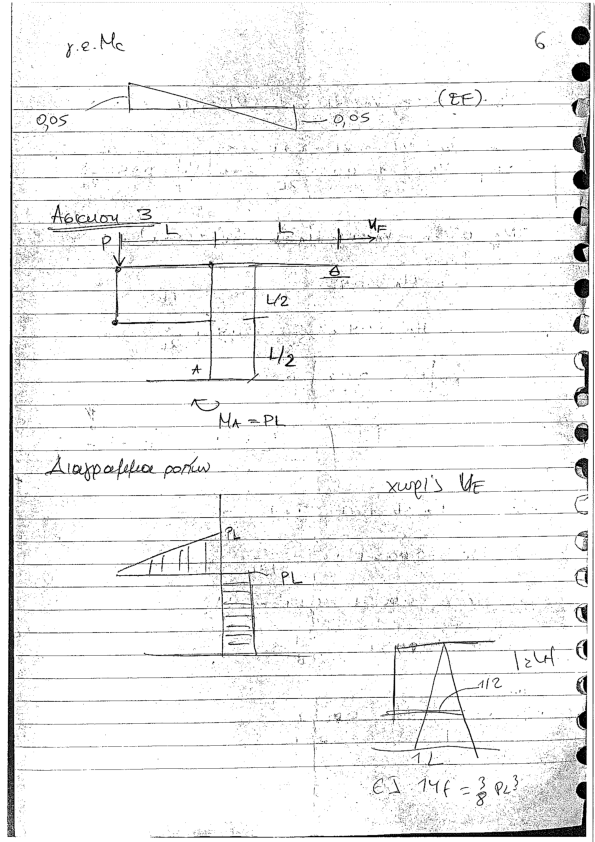 γ.ε. Mc
6
0,05
0,05
(ΣF).
Άσκηση 3
P L L UF
B
L/2
L/2
A
MA = PL
Διαγράμματα ροπών
χωρίς UF
PL
PL
1/2
1L
EI 1Uf = 3/8 PL³